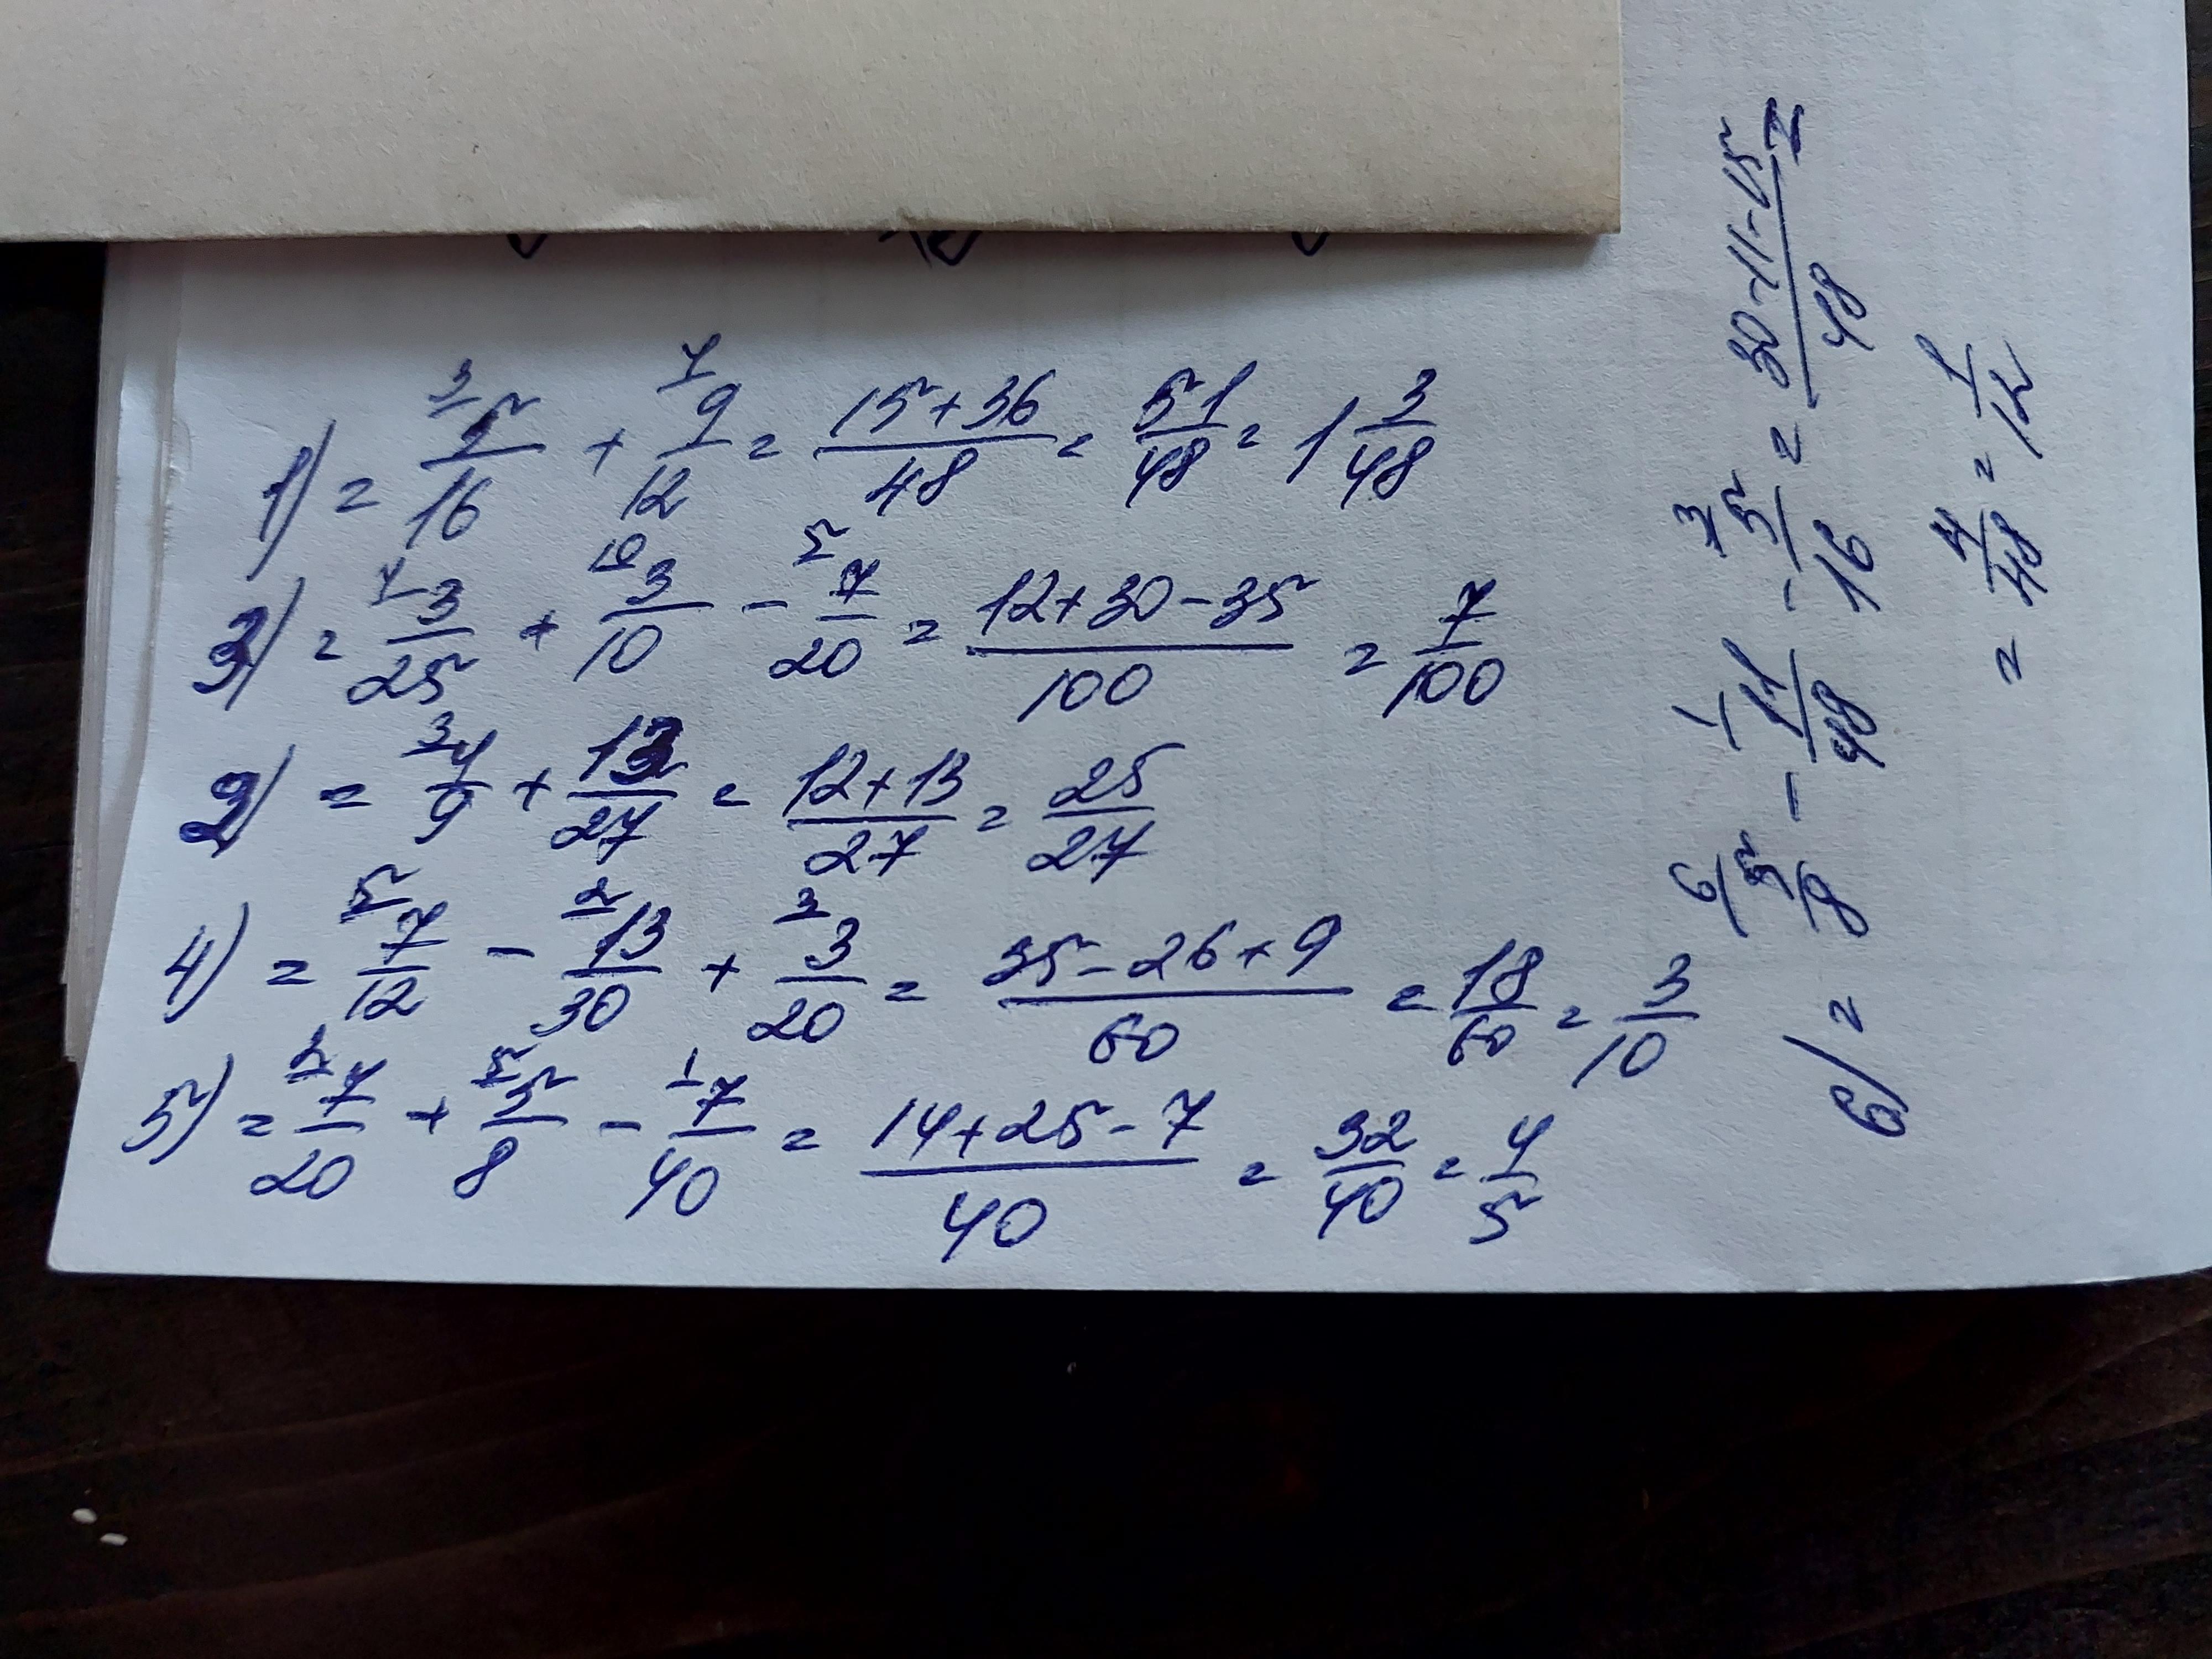 1) = 5/16 + 9/12 = (15+36)/48 = 51/48 = 1 3/48
3) = 3/25 + 3/10 - 7/20 = (12+30-35)/100 = 7/100
2) = 4/9 + 13/27 = (12+13)/27 = 25/27
4) = 7/12 - 13/30 + 3/20 = (35-26+9)/60 = 18/60 = 3/10
5) = 7/20 + 5/8 - 7/40 = (14+25-7)/40 = 32/40 = 4/5
6) = 5/8 - 11/48 - 5/16 = (30-11-15)/48 =
= 4/48 = 1/12